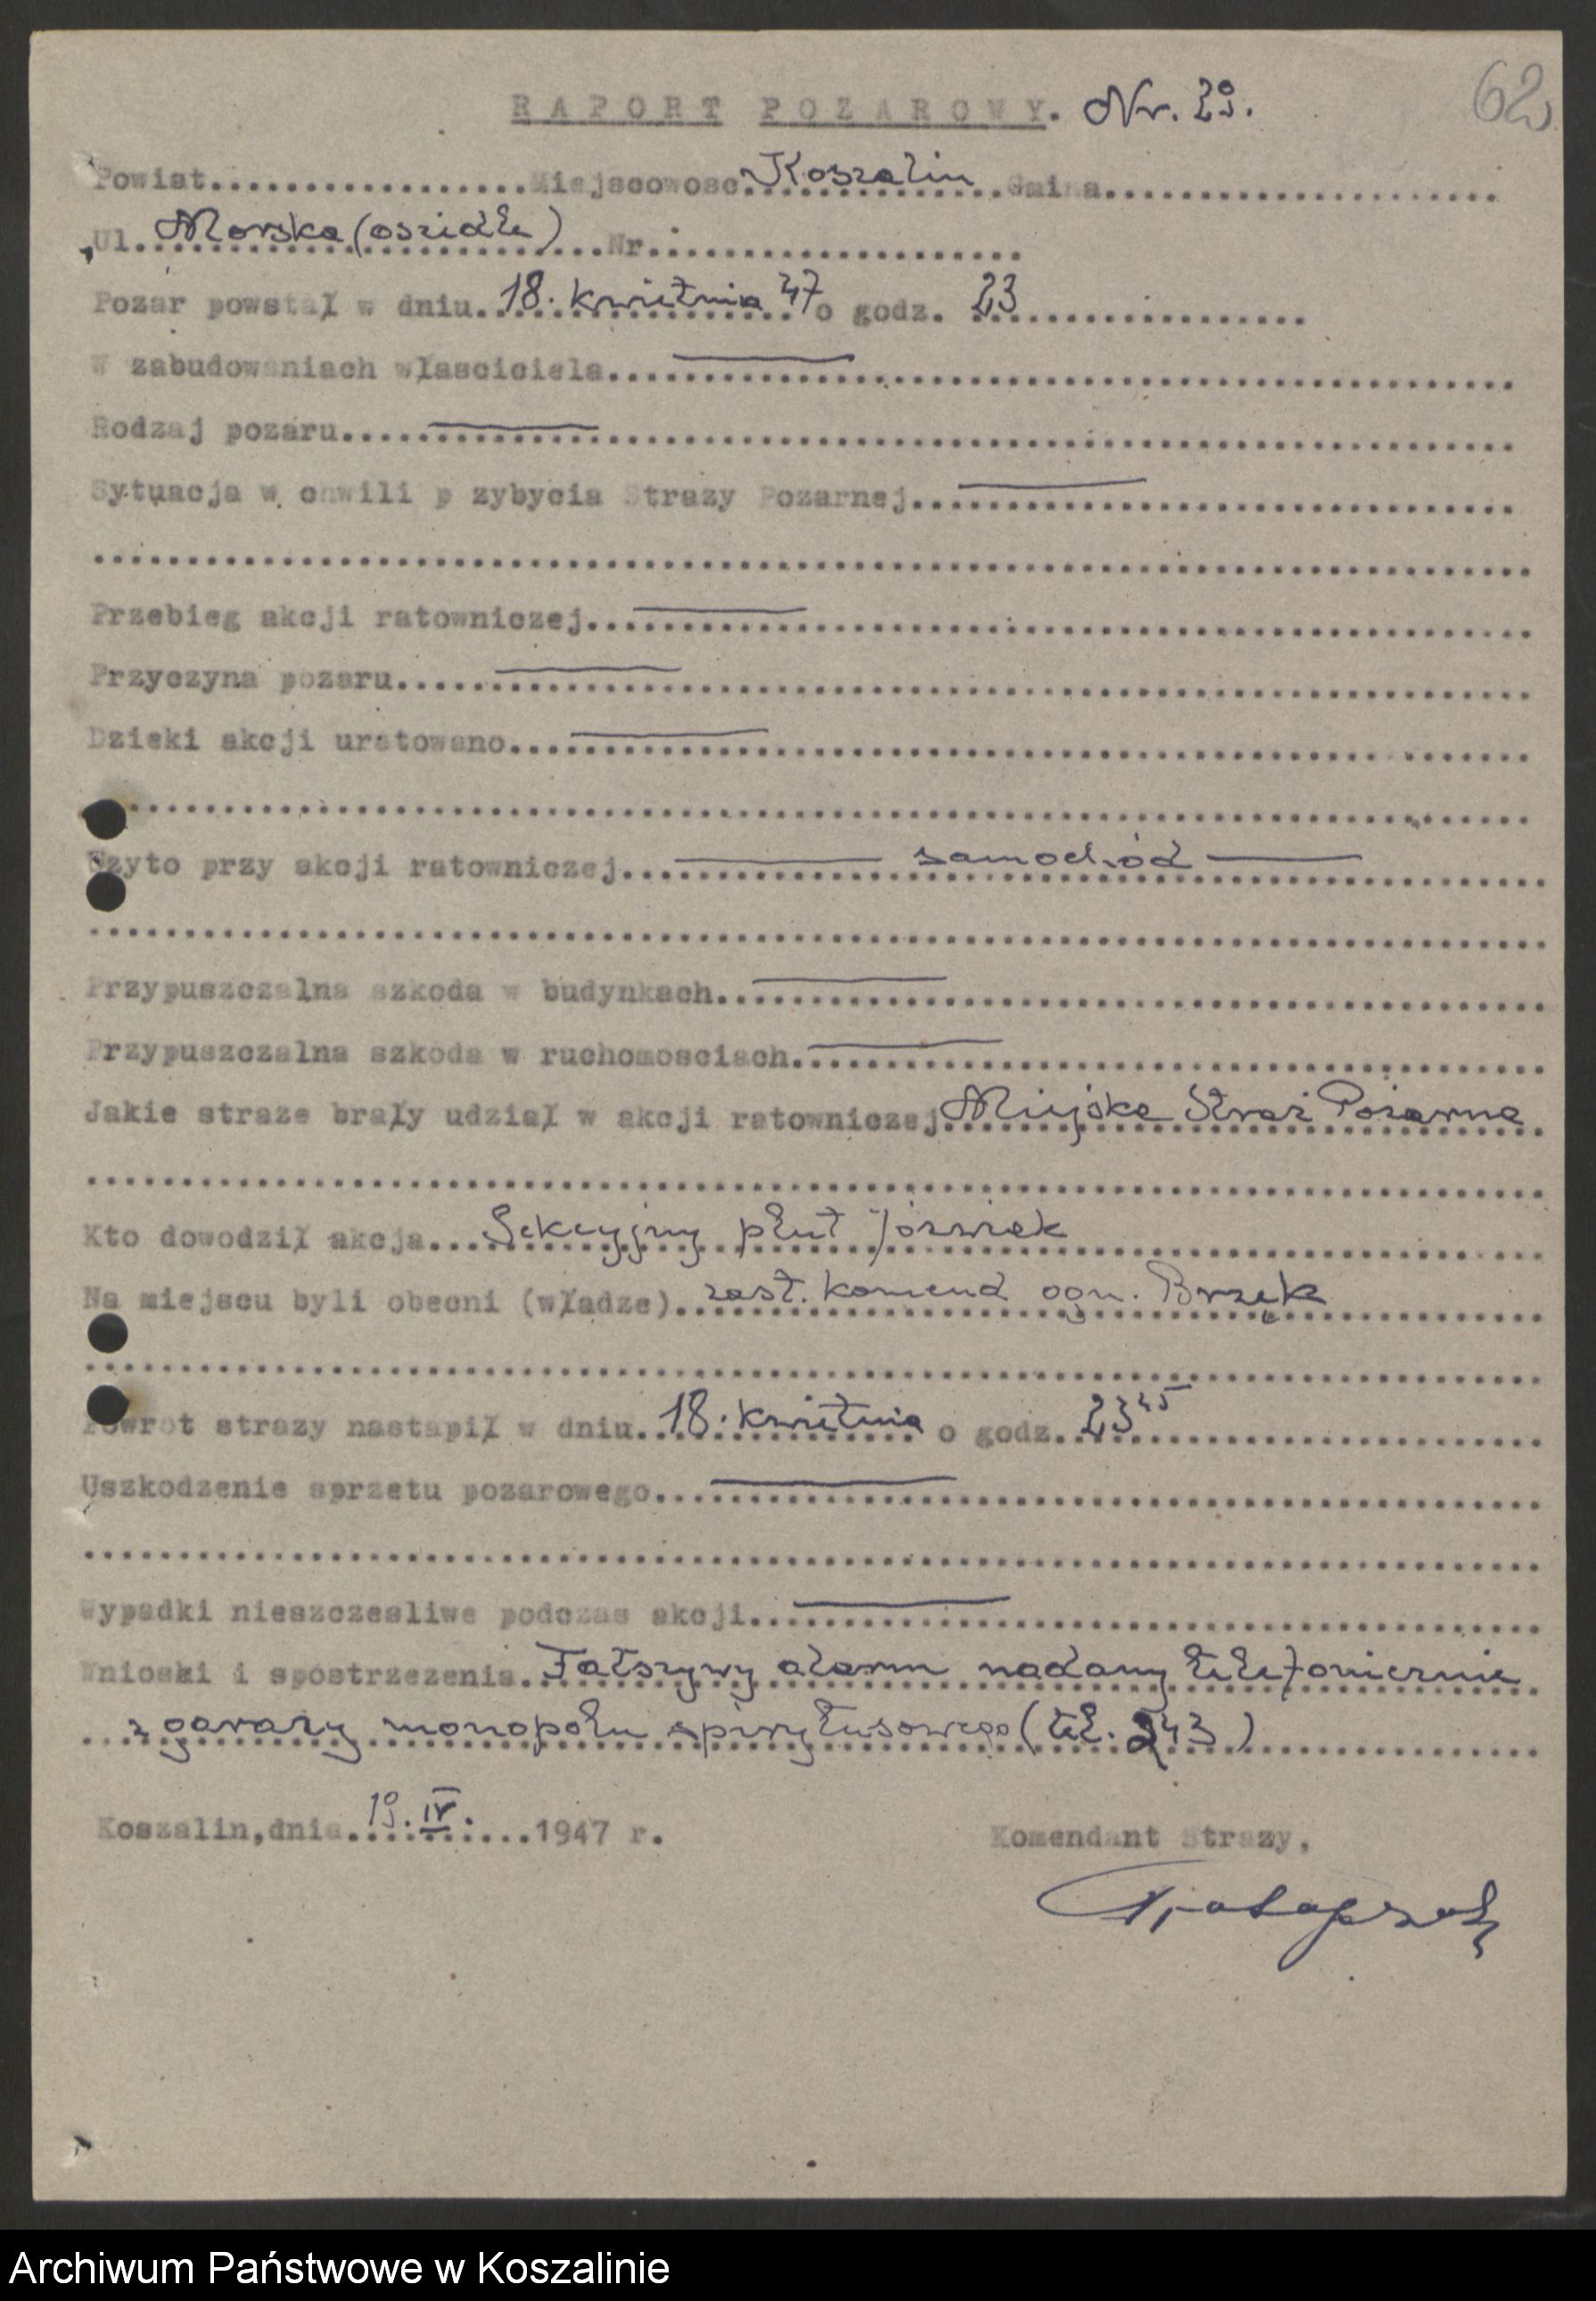 RAPORT POZAROWY. Nr. 29.
62
Powiat.................Miejscowosc.Koszalin.Gmina.....................
Ul. Morska (osiedle)...Nr....................
Pozar powstał w dniu..18. kwietnia 47 o godz. 23..................
W zabudowaniach własciciela.....—
Rodzaj pozaru.....—
Sytuacja w chwili p zybycia Strazy Pozarnej...—
......................................................................
Przebieg akcji ratowniczej...—
Przyczyna pozaru......—
Dzieki akcji uratowano....—
......................................................................
Uzyto przy akcji ratowniczej...— samochód —
......................................................................
Przypuszczalna szkoda w budynkach..—
Przypuszczalna szkoda w ruchomosciach.—
Jakie straze brały udział w akcji ratowniczej Miejska Straż Pożarna
......................................................................
Kto dowodził akcja... Sekcyjny plut Jóźwiak
Na miejscu byli obecni (władze). zast. komend ogn. Brzęk
......................................................................
Powrot strazy nastapił w dniu. 18. kwietnia o godz. 23 45
Uszkodzenie sprzetu pozarowego...—
......................................................................
Wypadki nieszczesliwe podczas akcji..—
Wnioski i spostrzezenia. Fałszywy alarm nadany telefonicznie
z garaży monopolu spirytusowego (tel. 243)
Koszalin,dnia. 19. IV. 1947 r.
Komendant Strazy,
Archiwum Państwowe w Koszalinie